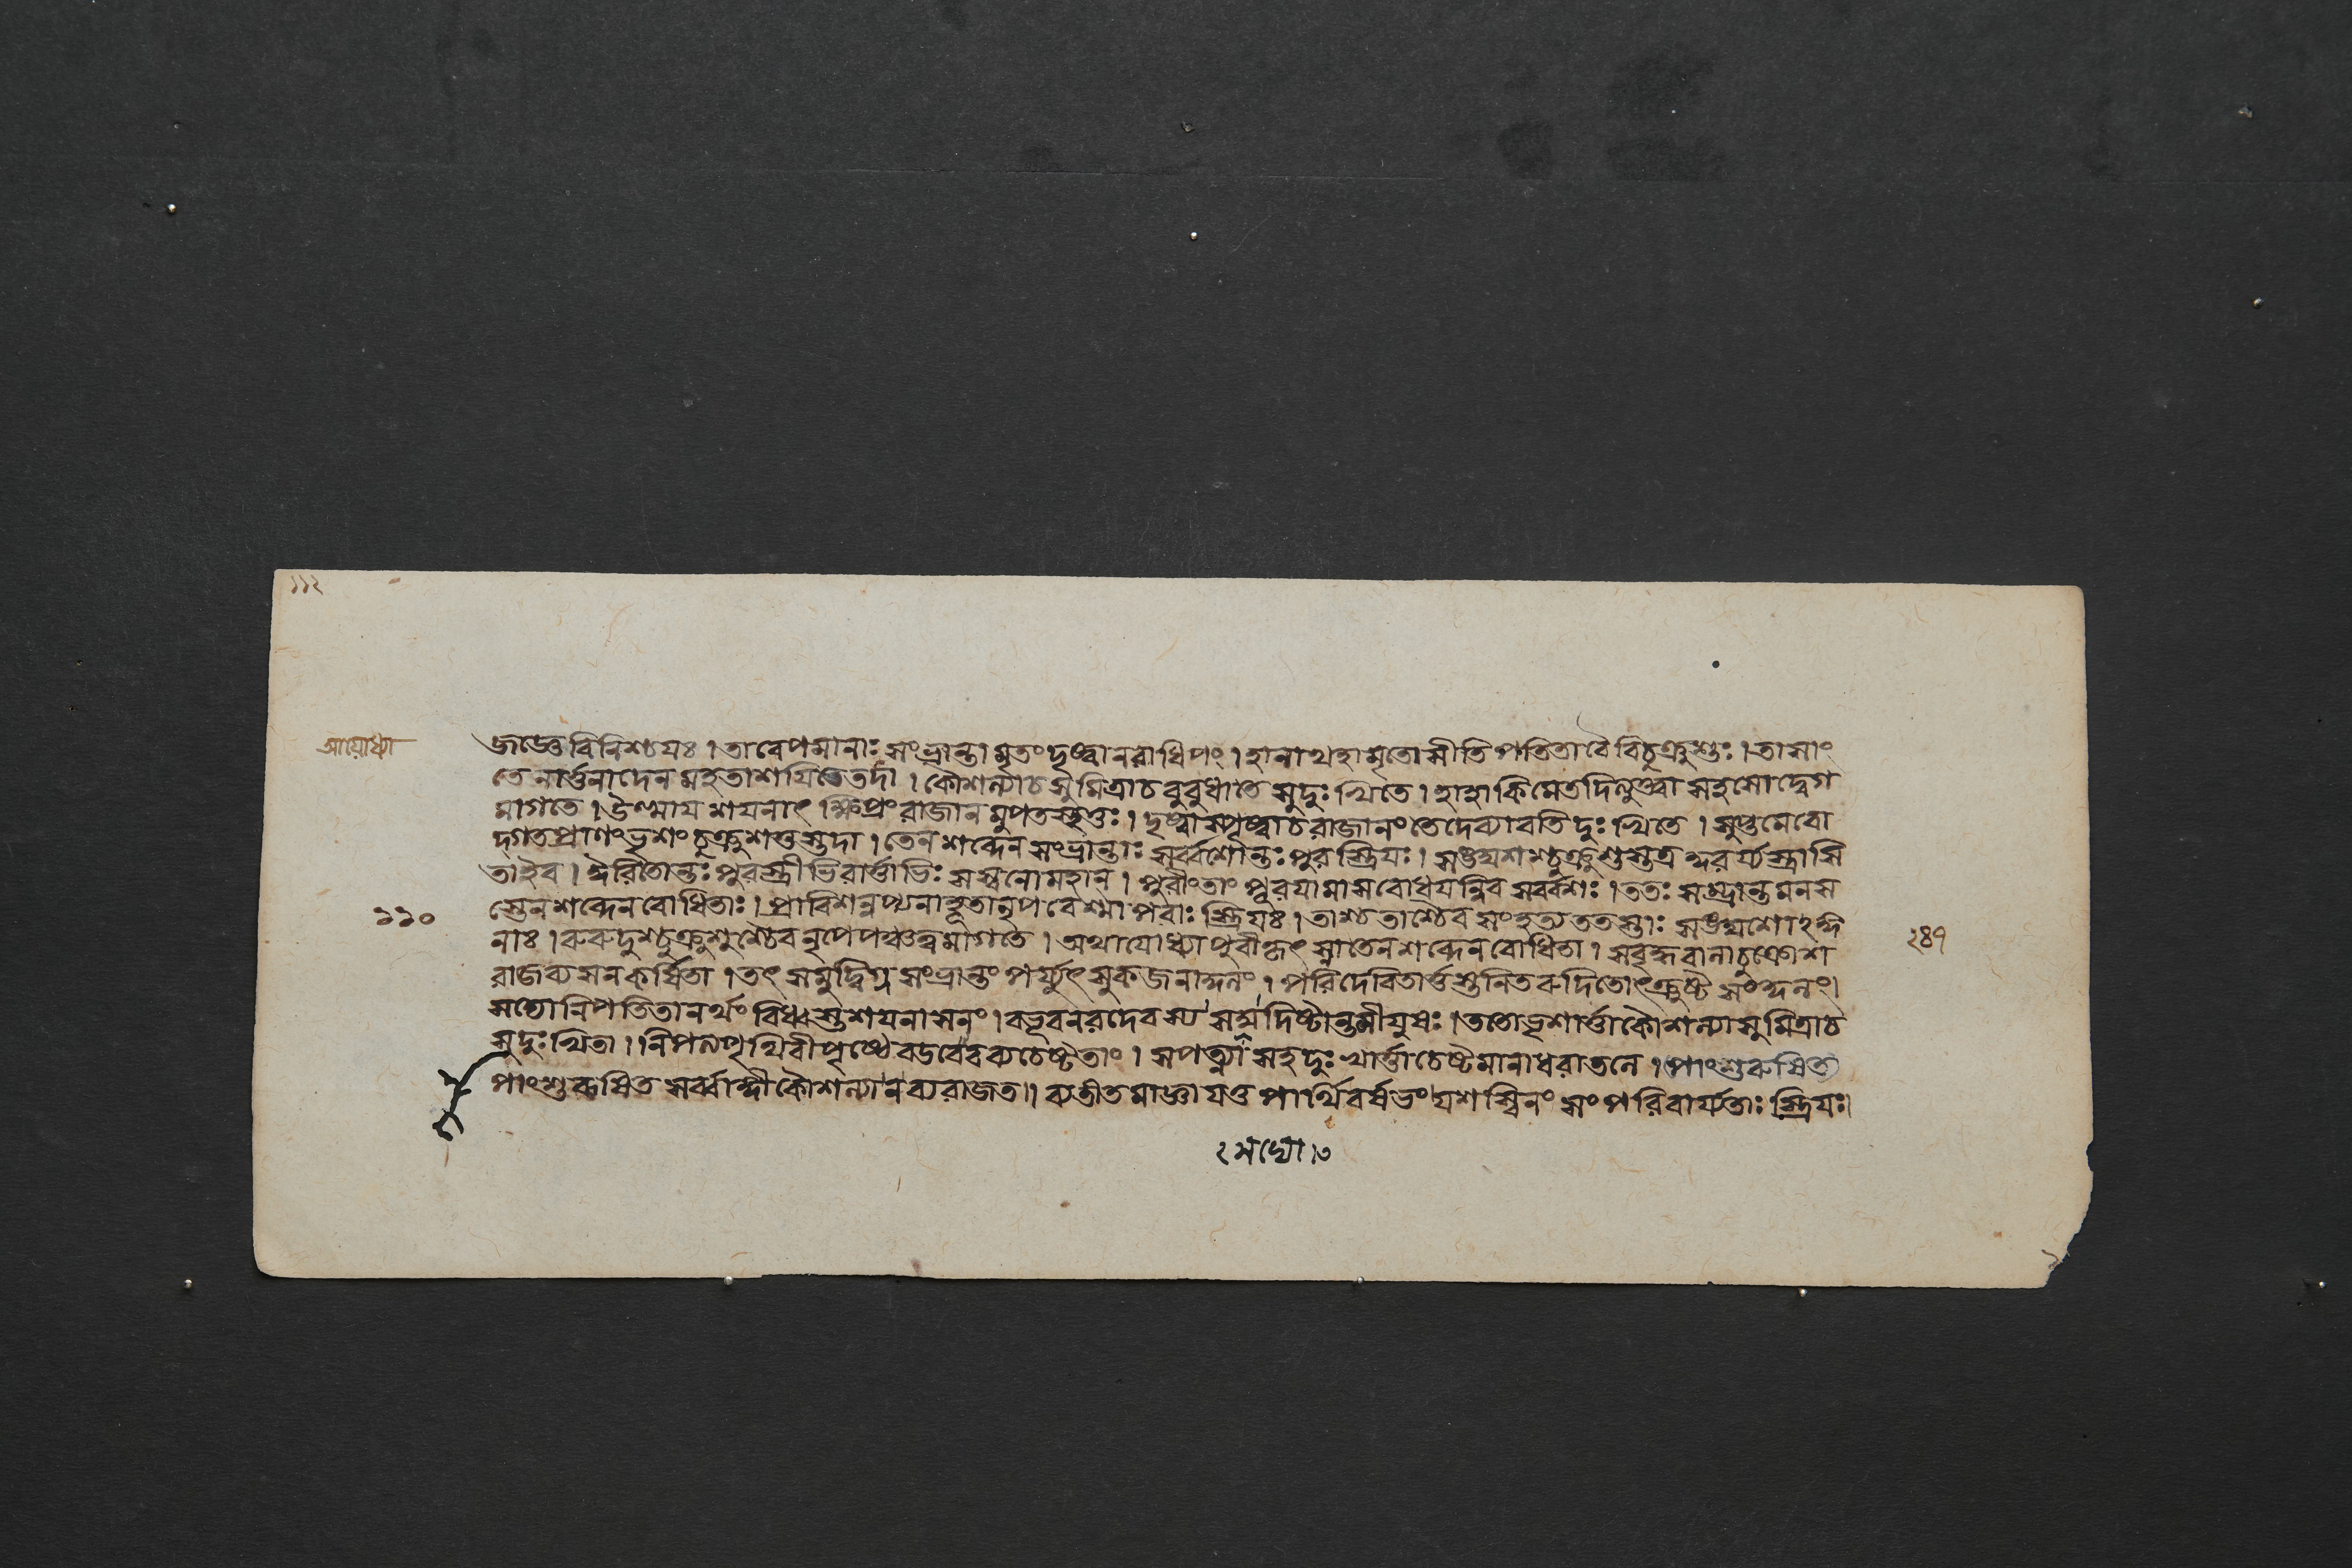 ১১২
জজ্ঞেবিনিশ্চযঃ।তাবেপমানাঃসংভ্রান্তামৃতংদৃষ্ট্বানরাধিপং।হানাথহামৃতোসীতিপতিতাবৈবিচুক্রুশুঃ।তাসাং
আয়োধ্যা
তেনার্ত্তনাদেনমহতাশযিতেতদা।কৌশল্যাচসুমিত্রাচবুবুধাতেসুদুঃখিতে।হাহাকিমেতদিত্যুক্ত্বাসহসোদ্বেগ
মাগতে।উত্থাযশযনাৎক্ষিপ্রংরাজানমুপতস্থতুঃ।দৃষ্ট্বাস্পৃষ্ট্বাচরাজানংতেদেব্যাবতিদুঃখিতে।সুপ্তমেবো
দ্গতপ্রাণংভৃশংচুক্রুশতুস্তদা।তেনশব্দেনসংভ্রান্তাঃসর্ব্বশোন্তঃপুরস্ত্রিযঃ।
তাইব।ঈরিতোন্তঃপুরস্ত্রীভিরার্ত্তাভিঃসস্বনোমহান্।পুরীংতাংপূরযামাসবোধযন্নিবসর্ব্বশঃ।ততঃসম্ভ্রান্তমনস
১১০
স্তেনশব্দেনবোধিতাঃ।প্রাবিশন্নপ্যনাহূতানৃপবেশ্মাপরাঃস্ত্রিযঃ।তাশ্চতাশ্চৈবসংহত্যততস্তাঃ
নাঃ।রুরুদুশ্চুক্রুশুশ্চৈবনৃপেপঞ্চত্বমাগতে।অথাযোধ্যাপুরীকৃৎস্নাতেনশব্দেনবোধিতা।সবৃদ্ধবালাচুক্রোশ
২৪৭
রাজব্যসনকর্ষিতা।তৎসমুদ্বিগ্নসংভ্রান্তংপর্য্যুৎসুকজনার্দ্দনং।পরিদেবিতার্ত্তস্তনিতরুদিতোৎক্রুষ্ট
সদ্যোনিপতিতানর্থংবিধ্বস্তশযনাসনং।বভূবনরদেবস্যসদ্মদিষ্টান্তমীযুষঃ।ততোভৃশার্ত্তাকৌশল্যাসুমিত্রাচ
সুদুঃখিতা।নিপত্যপৃথিবীপৃষ্ঠেবডবেবব্যচেষ্টতাং।সপত্ন্যাসহদুঃখার্ত্তাচেষ্টমানাধরাতলে।পাংশুরুষিত
পাংশুরুষিতসর্ব্বাঙ্গীকৌশল্যানব্যরাজত।ব্যতীতমাজ্ঞাযতুপার্থিবর্ষভংযশস্বিনংসংপরিবার্য্যতাঃস্ত্রিযঃ।